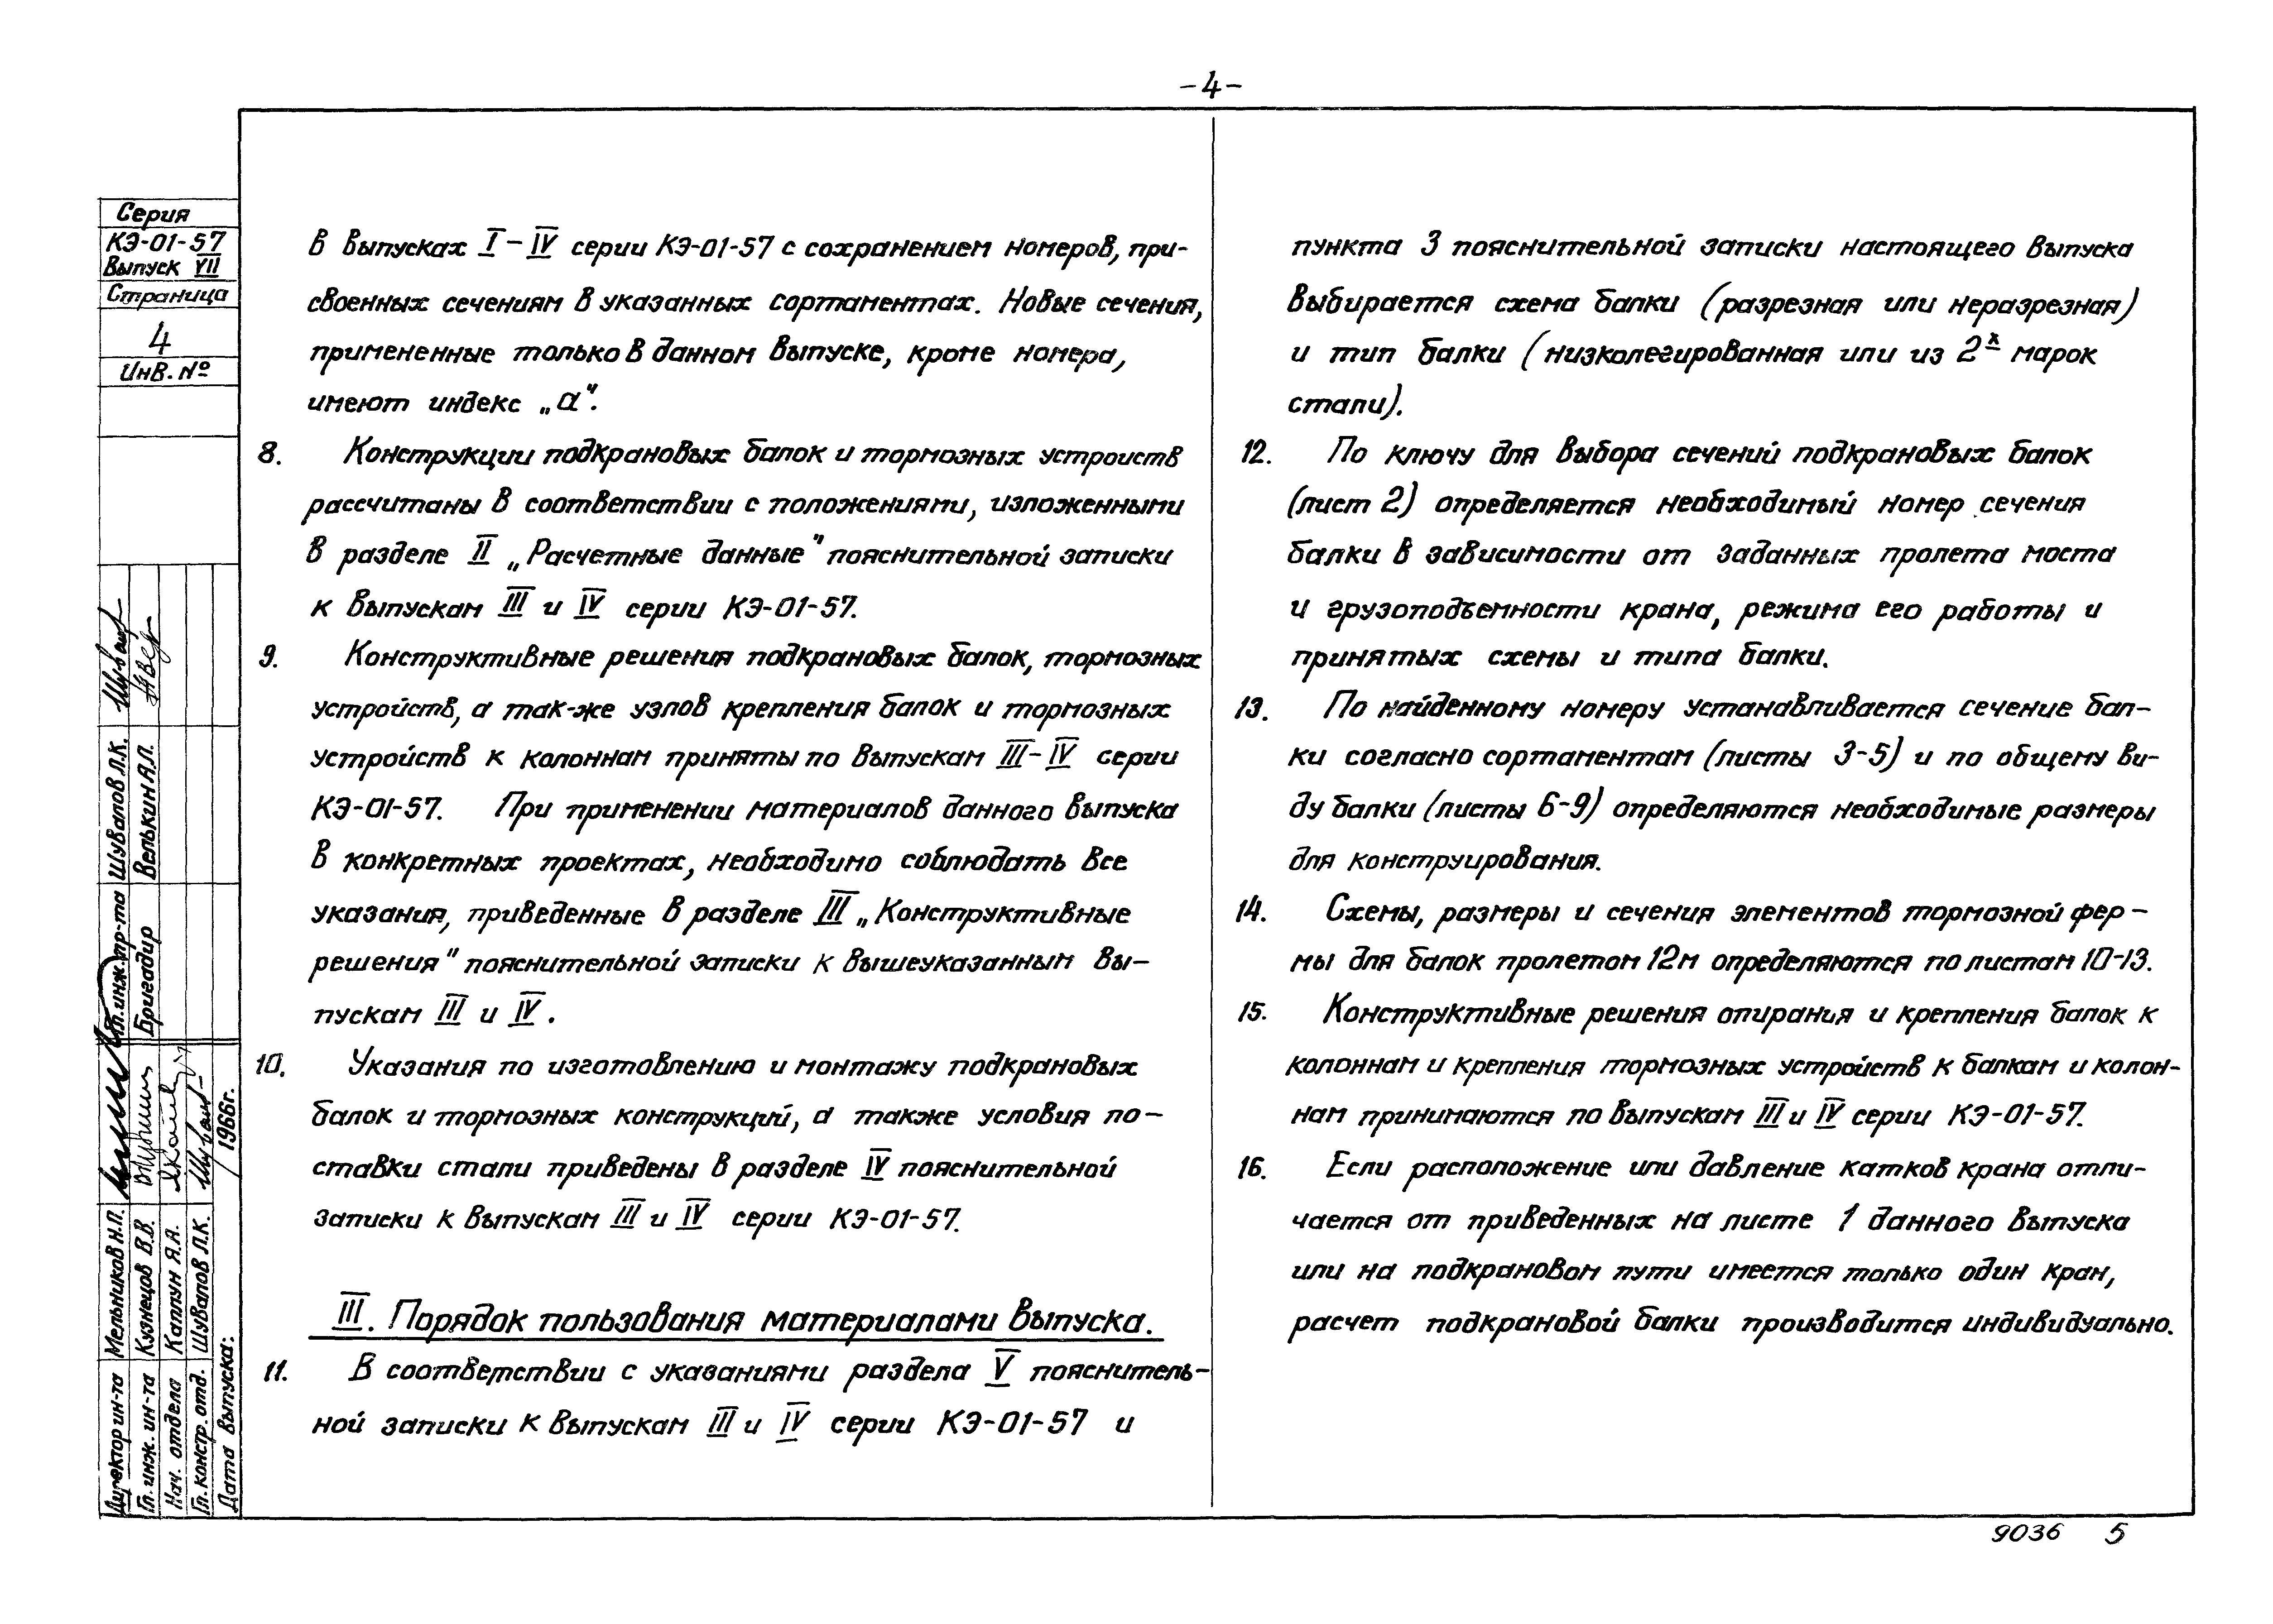 -4-
Серия
КЭ-01-57
Выпуск VII
Страница
4
Инв. №
в выпусках I-IV серии КЭ-01-57 с сохранением номеров, при-
своенных сечениям в указанных сортаментах. Новые сечения,
примененные только в данном выпуске, кроме номера,
имеют индекс „а".
8. Конструкции подкрановых балок и тормозных устроиств
рассчитаны в соответствии с положениями, изложенными
в разделе II „Расчетные данные" пояснительной записки
к выпускам III и IV серии КЭ-01-57.
9. Конструктивные решения подкрановых балок, тормозных
устройств, а так-же узлов крепления балок и тормозных
устройств к колоннам приняты по выпускам III-IV серии
КЭ-01-57. При применении материалов данного выпуска
в конкретных проектах, необходимо соблюдать все
указания, приведенные в разделе III „Конструктивные
решения" пояснительной записки к вышеуказанным вы-
пускам III и IV.
10. Указания по изготовлению и монтажу подкрановых
балок и тормозных конструкций, а также условия по-
ставки стали приведены в разделе IV пояснительной
записки к выпускам III и IV серии КЭ-01-57.
III. Порядок пользования материалами выпуска.
11. В соответствии с указаниями раздела V пояснитель-
ной записки к выпускам III и IV серии КЭ-01-57 и
пункта 3 пояснительной записки настоящего выпуска
выбирается схема балки (разрезная или неразрезная)
и тип балки (низколегированная или из 2х марок
стали).
12. По ключу для выбора сечений подкрановых балок
(лист 2) определяется необходимый номер сечения
балки в зависимости от заданных пролета моста
и грузоподъемности крана, режима его работы и
принятых схемы и типа балки.
13. По найденному номеру устанавливается сечение бал-
ки согласно сортаментам (листы 3-5) и по общему ви-
ду балки (листы 6-9) определяются необходимые размеры
для конструирования.
14. Схемы, размеры и сечения элементов тормозной фер-
мы для балок пролетом 12м определяются по листам 10-13.
15. Конструктивные решения опирания и крепления балок к
колоннам и крепления тормозных устройств к балкам и колон-
нам принимаются по выпускам III и IV серии КЭ-01-57.
16. Если расположение или давление катков крана отли-
чается от приведенных на листе 1 данного выпуска
или на подкрановом пути имеется только один кран,
расчет подкрановой балки производится индивидуально.
Директор ин-та Мельников Н.П.
Гл. инж. ин-та Кузнецов В.В.
Нач. отдела Каплун Я.А.
Гл. констр. отд. Шувалов Л.К.
Дата выпуска: 1966г.
Гл. инж. пр-та Шувалов Л.К.
Бригадир Велькин А.Л.
9036 5